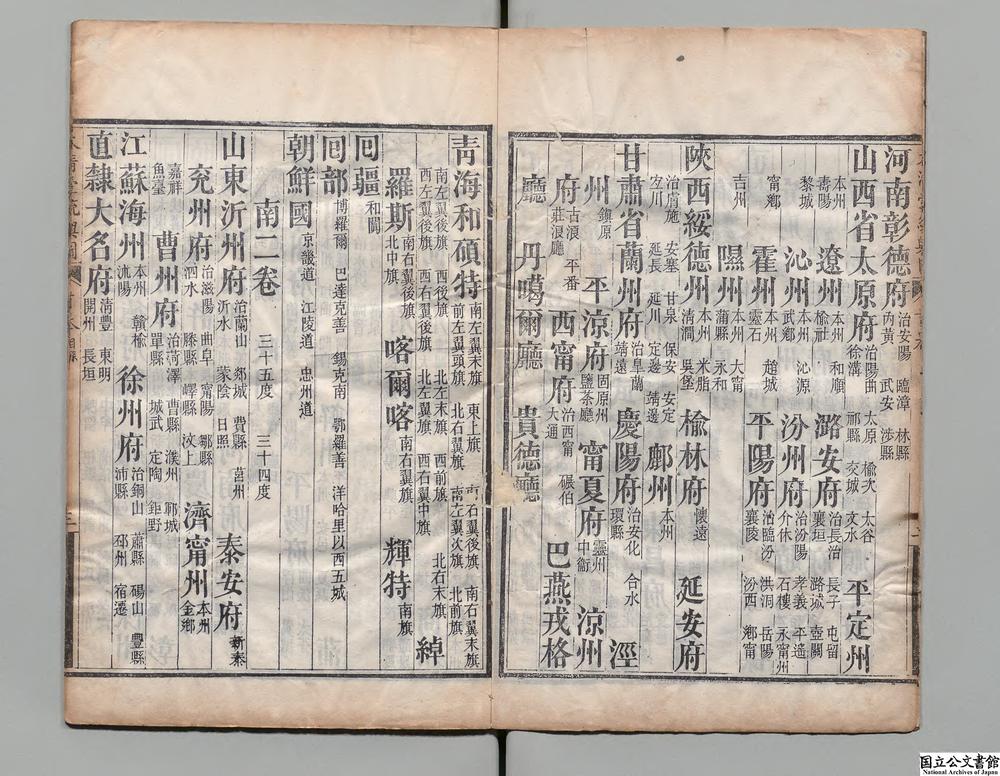 河南彰德府 治安陽 臨漳 林縣 內黃 武安 涉縣
山西省太原府 治陽曲 太原 榆次 太谷 徐溝 祁縣 交城 文水 平定州
本州 壽陽 遼州 本州 和順 榆社 潞安府 治長治 長子 屯留 襄垣 潞城 壺關
黎城 沁州 本州 沁源 武鄉 汾州府 治汾陽 孝義 平遙 介休 石樓 永甯州
甯鄉 霍州 本州 趙城 靈石 平陽府 治臨汾 洪洞 岳陽 襄陵 汾西 鄉甯
吉州 隰州 本州 大甯 蒲縣 永和
陝西綏德州 本州 米脂 清澗 吳堡 榆林府 懷遠 延安府
治膚施 安塞 甘泉 保安 安定 宜川 延長 延川 定邊 靖邊 鄜州 本州
甘肅省蘭州府 治皋蘭 靖遠 慶陽府 治安化 合水 環縣 涇
州 鎮原 平涼府 固原州 鹽茶廳 甯夏府 靈州 中衛 涼州
府 古浪 平番 莊浪廳 西甯府 治西甯 碾伯 大通 巴燕戎格
廳 丹噶爾廳 貴德廳
青海和碩特 南左翼末旗 東上旗 南右翼後旗 南右翼末旗 前左翼頭旗 北右翼旗 南左翼次旗 北前旗
南左翼後旗 西右後旗 北左末旗 西前旗 北右末旗 西左翼後旗 西右翼後旗 北左翼旗 西右翼中旗 綽
羅斯 南右翼後旗 北中旗 喀爾喀 南右翼旗 輝特 南旗
回疆 和闐
回部 博羅爾 巴達克善 錫克南 鄂羅善 洋哈里以西五城
朝鮮國 京畿道 江陵道 忠州道
南二卷 三十五度 三十四度
山東沂州府 治蘭山 郯城 費縣 莒州 沂水 蒙陰 日照 泰安府 新泰
兗州府 治滋陽 曲阜 甯陽 鄒縣 泗水 滕縣 嶧縣 汶上 濟甯州 本州 金鄉
嘉祥 魚臺 曹州府 治菏澤 曹縣 濮州 鄆城 單縣 城武 定陶 鉅野
江蘇海州 本州 贛榆 沭陽 徐州府 治銅山 蕭縣 碭山 豐縣 沛縣 邳州 宿遷
直隸大名府 清豐 東明 開州 長垣
国立公文書館
National Archives of Japan